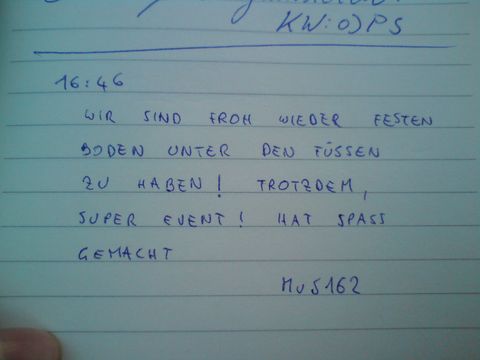 KW:O)PS
16:46
WIR SIND FROH WIEDER FESTEN
BODEN UNTER DEN FÜSSEN
ZU HABEN! TROTZDEM,
SUPER EVENT! HAT SPASS
GEMACHT